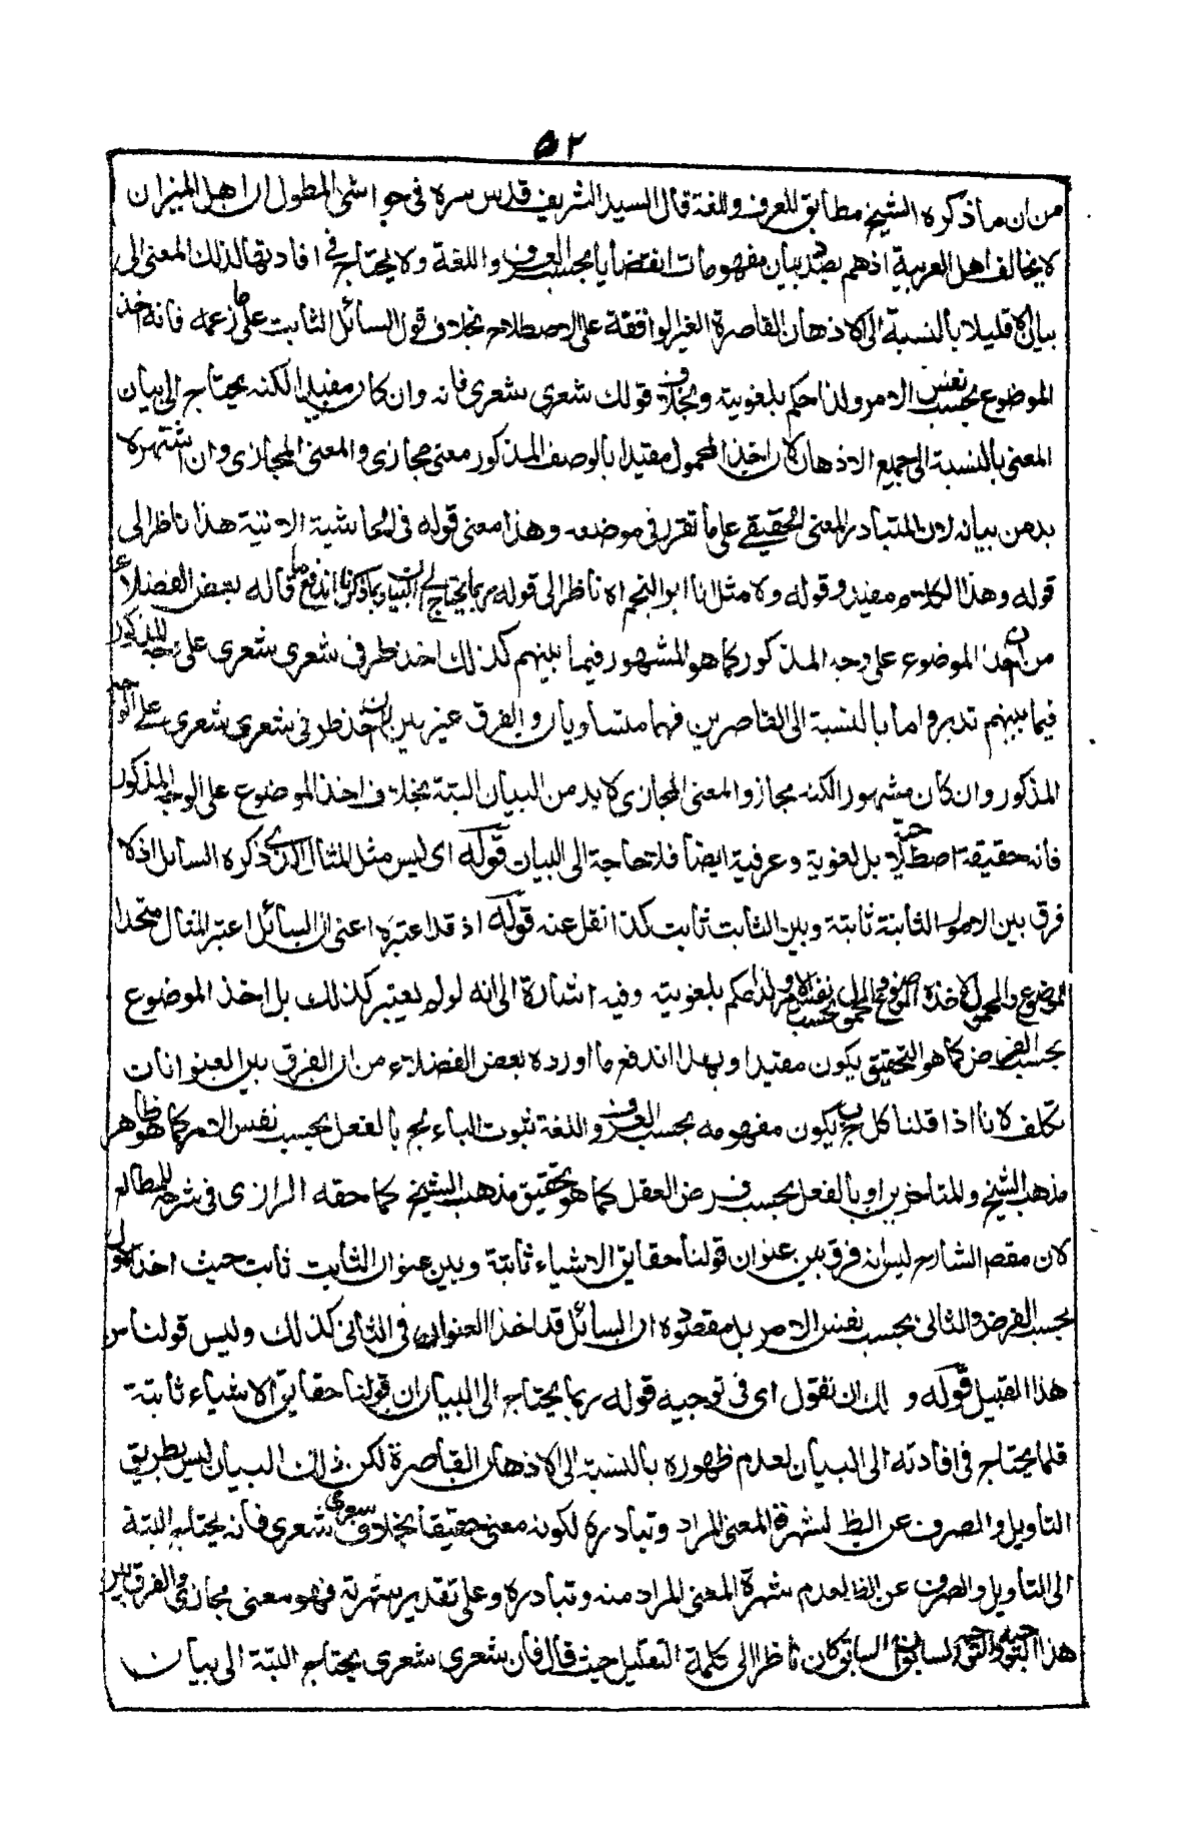 ٥٢
من ان ما ذكره الشيخ مطابق للعرف واللغة قال السيد الشريف قدس سره فى حواشى المطول ان اهل الميزان
لا يخالف اهل العربية اذهم بصدد بيان مفهومات القضايا بحسب العرف واللغة ولا يحتاج فى افادتها لذلك المعنى الى
بيان الا قليلا بالنسبة الى الاذهان القاصرة الغير الواقفة على الاصطلاح بخلاف قول السائل الثابت على ما زعمه فانه اخذ
الموضوع بحسب نفس الامر ولذا حكم بلغويته وبخلاف قولك شعرى شعرى فانه وان كان مفيدا لكنه يحتاج الى بيان
المعنى بالنسبة الى جميع الاذهان لان اخذ المحمول مقيدا بالوصف المذكور معنى مجازى والمعنى المجازى وان اشتهر لا
بد من بيانه لان المتبادر المعنى الحقيقے على ما تقرر فى موضعه وهذا معنى قوله فى الحاشية الاتية هذا ناظر الى
قوله وهذا الكلام مفيد وقوله ولا مثل انا ابو النجم اه ناظر الى قوله ربما يحتاج الى البيان بما ذكرنا اندفع ما قاله بعض الفضلاء
من ان اخذ الموضوع على وجه المذكور كما هو المشهور فيما بينهم كذلك اخذ ظرفى شعرى شعرى على الوجه المذكور
فيما بينهم تدبر واما بالنسبة الى القاصرين فهما متساويان والفرق غير بين بان اخذ ظرفى شعرى شعرى على الوجه
المذكور وان كان مشهورا لكنه مجاز والمعنى المجازى لا بد من البيان البتة بخلاف اخذ الموضوع على الوجه المذكور
فانه حقيقة اصطلاحية بل لغوية وعرفية ايضا فلا حاجة الى البيان قوله اى ليس مثل المثال الذى ذكره السائل اذ لا
فرق بين الامور الثابتة ثابتة وبين الثابت ثابت كذا نقل عنه قوله اذ قد اعتبره اعنى ان السائل اعتبر المثال متحدا
الموضوع والمحمول لاخذه الموضوع والمحمول بحسب نفس الامر ولذا حكم بلغويته وفيه اشارة الى انه لو لم يعتبر كذلك بل اخذ الموضوع
بحسب الفرض كما هو التحقيق يكون مفيدا وبهذا اندفع ما اورده بعض الفضلاء من ان الفرق بين العنوانات
تكلف لانا اذا قلنا كل ج ب يكون مفهومه بحسب العرف واللغة ثبوت الباء لج بالفعل بحسب نفس الامر كما هو ظاهر
مذهب الشيخ والمتاخرين او بالفعل بحسب فرض العقل كما هو تحقيق مذهب الشيخ كما حققه الرازى فى شرحه للمطالع
لان مقصد الشارح ليس انه فرق بين عنوان قولنا حقايق الاشياء ثابتة وبين عنوان الثابت ثابت حيث اخذ الاول
بحسب الفرض والثانى بحسب نفس الامر بل مقصوده ان السائل قد اخذ العنوان فى الثانى كذلك وليس قولنا من
هذا القبيل قوله و لك ان تقول اى فى توجيه قوله ربما يحتاج الى البيان ان قولنا حقايق الاشياء ثابتة
قلما يحتاج فى افادته الى البيان لعدم ظهوره بالنسبة الى الاذهان القاصرة لكن ذلك البيان ليس بطريق
التاويل والصرف عن الظ لشهرة المعنى المراد وتبادره لكونه معنى حقيقا بخلاف شعرى شعرى فانه يحتاج البتة
الى التاويل والصرف عن الظ لعدم شهرة المعنى المراد منه وتبادره وعلى تقدير شهرته فهو معنى مجازى والفرق بين
هذا التوجيه والتوجيه السابق ان السابق كان ناظرا الى كلمة التقليل حيث قال فان شعرى شعرى يحتاج البتة الى بيان